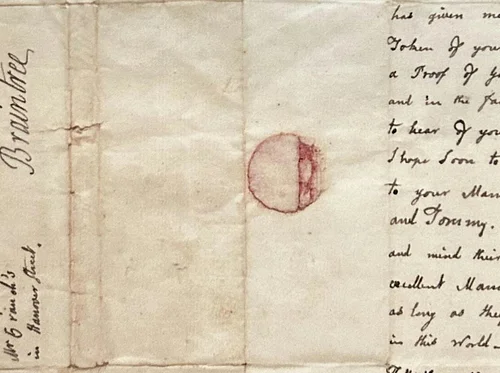 Braintree
Mr Cranch's
in Hanover Street.
has given me
Token of your
a Proof of y
and in the fa
to hear of you
I hope soon to
to your Mam
and Tommy.
and mind their
excellent Mam
as long as the
in this World—